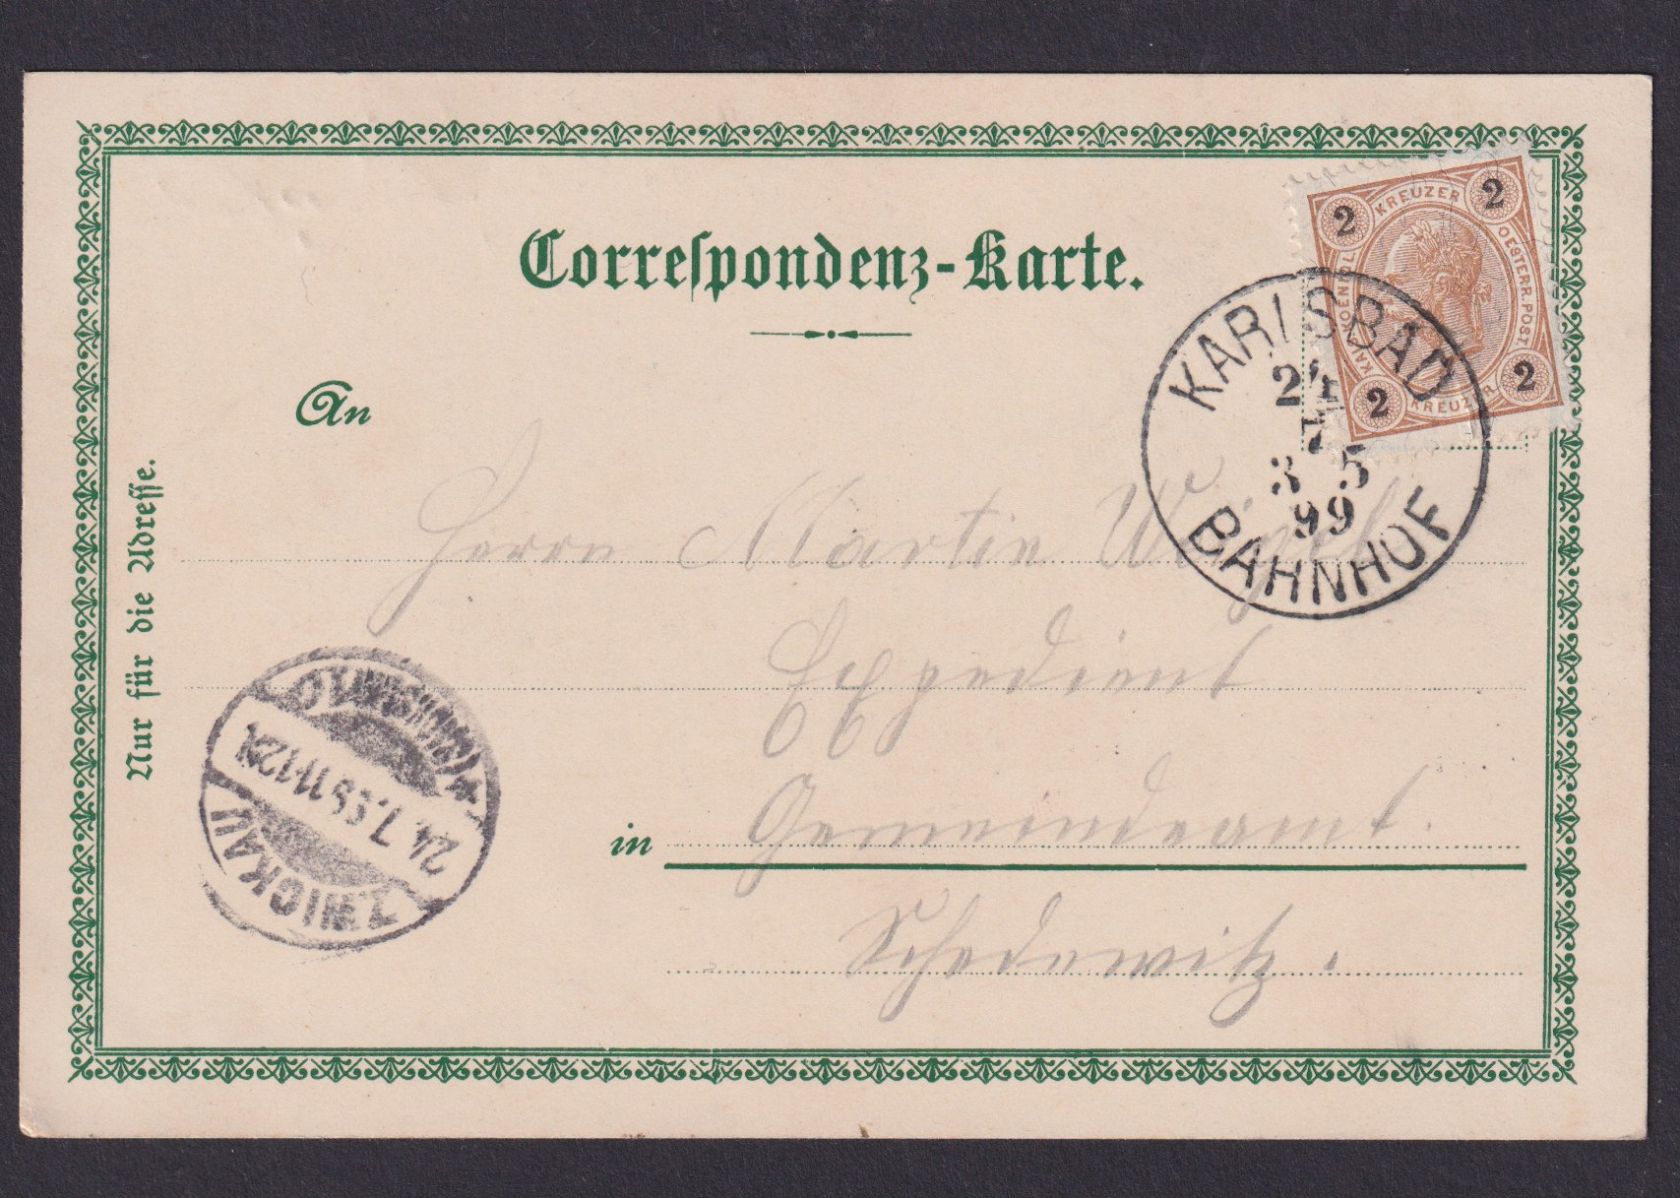 Correspondenz-Karte.
2 KREUZER 2
OESTERR. POST
2 KREUZER 2
KARLSBAD
24
7
3 5
99
BAHNHOF
An
Herrn Martin
Expedient
in Gemeindeamt.
Schedewitz.
Nur für die Adresse.
ZWICKAU
24.7.99 11-12N.